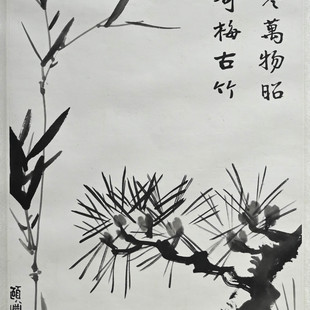 萬物昭
梅古竹
頤